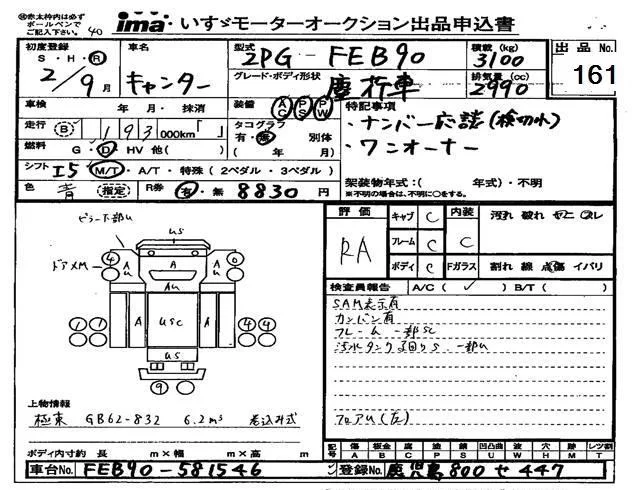 ※赤太枠内は必ず
ボールペンで
ご記入下さい。
40
ima ® いすゞモーターオークション出品申込書
初度登録
S ・ H ・ R
2 / 9 月
車名
キャンター
型式
2PG - FEB90
積載 (kg)
3100
出品 No.
161
グレード・ボディ形状
塵芥車
排気量 (cc)
2990
車検 年 月・ 抹消
装備 AC PS PW
特記事項
走行 (B) 193 000km「 」
タコグラフ
有・無 別体
( 年 月)
・ナンバー応談(検切れ)
・ワンオーナー
燃料 G ・ D ・ HV 他( )
シフト I5 M/T ・ A/T ・ 特殊 (2ペダル ・ 3ペダル)
架装物年式:( 年式)・不明
※不明の場合は、不明に○をする。
色 青 (指定)
R券 有・無 8830 円
評価
RA
キャブ C
フレーム C
ボディ C
内装
C
Fガラス
汚れ 破れ ヤニ スレ
割れ 線 点傷 イバリ
検査員報告 A/C ( ✓ ) B/T ( )
SAM表示有
カンバン有
フレーム 一部SC
汚水タンク廻りS 一部U
フロアU(左)
ピラー下部U
ドアXM
US
4
A
U
A
A
U
0
AU
A
USC
A
1 1
4 4
US
9
上物情報
極東 GB62-832 6.2m³ 巻込み式
ボディ内寸約 長 m×幅 m×高 m
記号
傷 A
板金 B
腐 C
塗 P
錆 S
凹凸曲 U
波 W
穴 H
跡 M
レンズ割 T
車台No. FEB90-581546
登録No. 鹿児島 800 せ 447